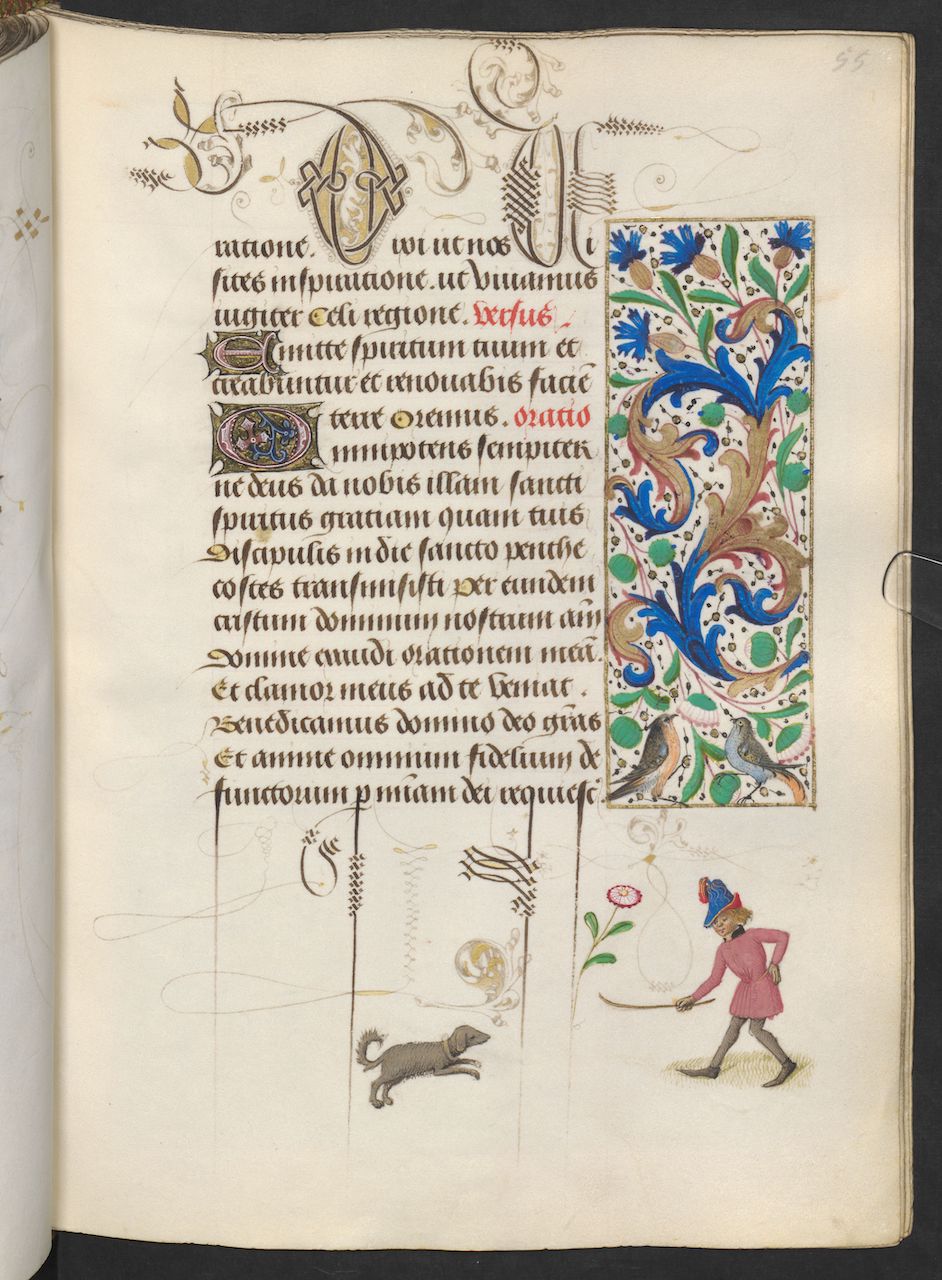 55
ratione. Qui ut nos Ui
sites inspiratione. ut viuamus
iugiter Celi regione. versus
Emitte spiritum tuum et
creabuntur et renouabis faciē
terre Oremus. oratio
Omnipotens sempiter
ne deus da nobis illam sancti
spiritus gratiam Quam tuis
Discipulis in die sancto penthe
costes transmisisti Per eundem
cristum dominum nostrum am̄
Domine exaudi orationem meā.
Et clamor meus ad te veniat.
Benedicamus domino deo grās
Et anime omnium fidelium de
functorum p mīam dei requiesc̄